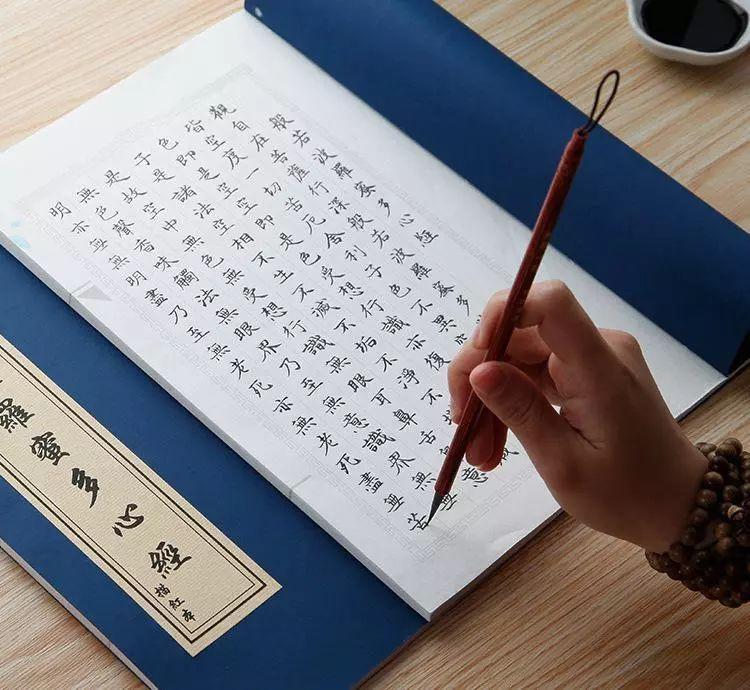 般若波羅蜜多心經
觀自在菩薩行深般若波羅蜜多
皆空度一切苦厄舍利子色不異
色即是空空即是色受想行識亦復
子是諸法空相不生不滅不垢不淨不
是故空中無色無受想行識無眼耳鼻舌
無色聲香味觸法無眼界乃至無意識界無
明亦無無明盡乃至無老死亦無老死盡無苦
羅蜜多心經
描紅本